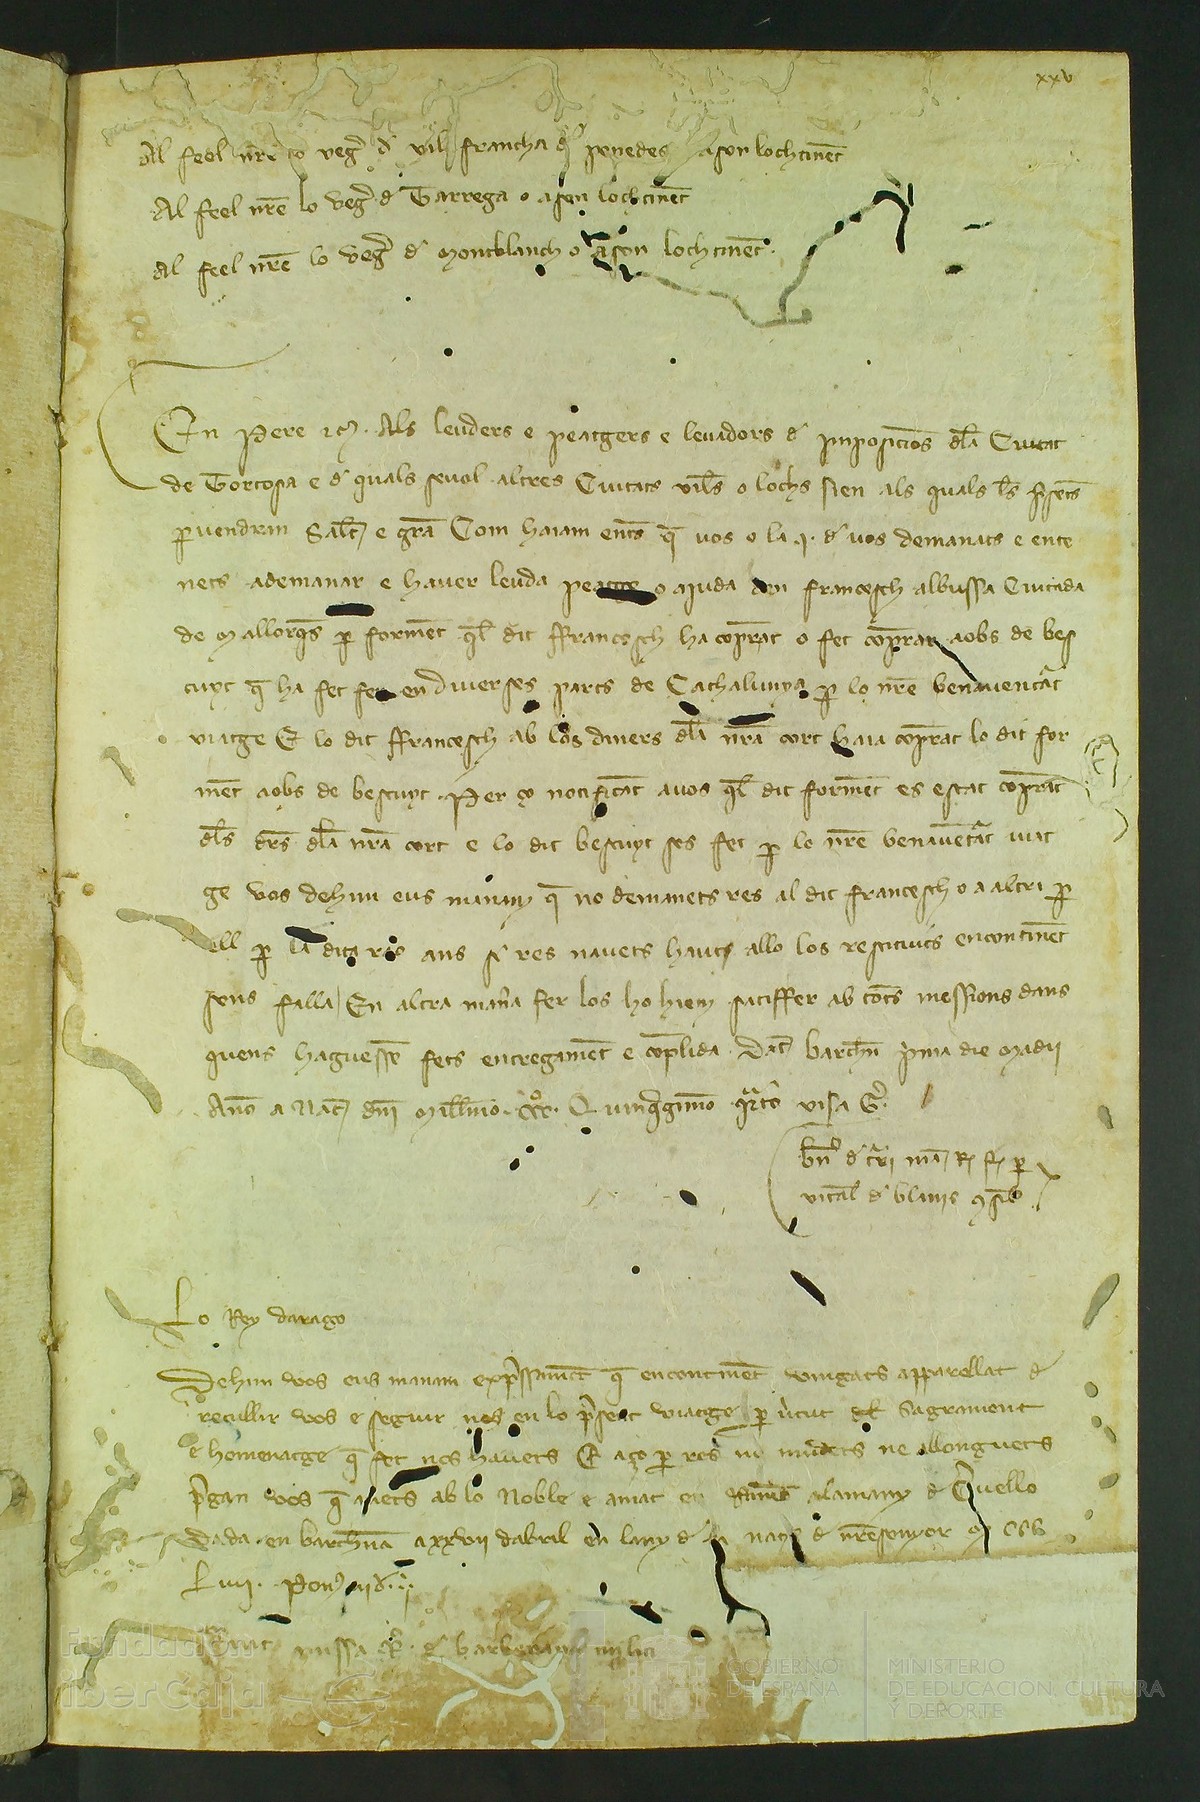 xxv
Al feel nr̄e lo veg̉ d' vil francha d' penedes o a son lochtinēt
Al feel nr̄e lo veg̉ d' Tarrega o a son lochtinēt
Al feel nr̄e lo veg̉ d' Montblanch o a son lochtinēt
En Pere Als leuders e peatgers e leuadors d' imposicions dl̄a Ciutat
de Tortosa e d' quals seuol altres Ciutats vil̄s o lochs sien als quals l̄s p̄sēts
p̱uendran Sal̄t e grā Com haiam entes q̄ vos o la .i. d' vos demanats e ente
nets a demanar e hauer leuda peatge o ajuda den francesch albussa Ciutada
de Mallorq̄s p̱ formēt ql̄ dit ffrancesch ha cop̄rat o fet cop̄rar a obs de bes
cuyt q̄ ha fet fer en diuerses parts de Cathalunya p̱ lo nr̄e benauenturat
viatge E lo dit ffrancesch ab los diners dl̄a nr̄a cort haia cop̄rat lo dit for
mēt a obs de bescuyt Per ço notificāt a vos ql̄ dit formēt es estat cop̄rat
dl̄s drs̄ dl̄a nr̄a cort e lo dit bescuyt ses fet p̱ lo nr̄e benauēturat viat
ge vos dehim eus manam q̄ no demanets res al dit francesch o a altri p̱
ell p̱ la dita rao ans si res nauets haut allo los restituits encontinēt
sens falla En altra man̄a fer los ho hiem satisffer ab tots messions dans
quens haguessē fets entregamēt e cop̄lida Dat̄ barchn̄ p̄ma die Madii
Ano a Nat̄ dn̄i Mill̄mo CCC Quinq̄gimo q̄rto visa G̉.
bn̄ d' mā R
vital d' blanis
Lo Rey darago
Dehim vos eus manam exp̄ssamēt q̄ encontinēt vingats apparellat d'
recullir vos e seguir nos en lo p̄sent viatge p̱ v̉tut del sagrament
e homenatge q̄ fet nos hauets E aço p̱ res no mudets ne allonguets
p̄gan vos q̄ anets ab lo Noble e amat en alamany d' C̉uello
Dada en barchn̄a a xxvii dabril en lany d' la nat̄ d' nr̄e senyor M CCC
Liiij.
missa d' barbera militi
Fundación
iberCaja
GOBIERNO
DE ESPAÑA
MINISTERIO
DE EDUCACIÓN, CULTURA
Y DEPORTE